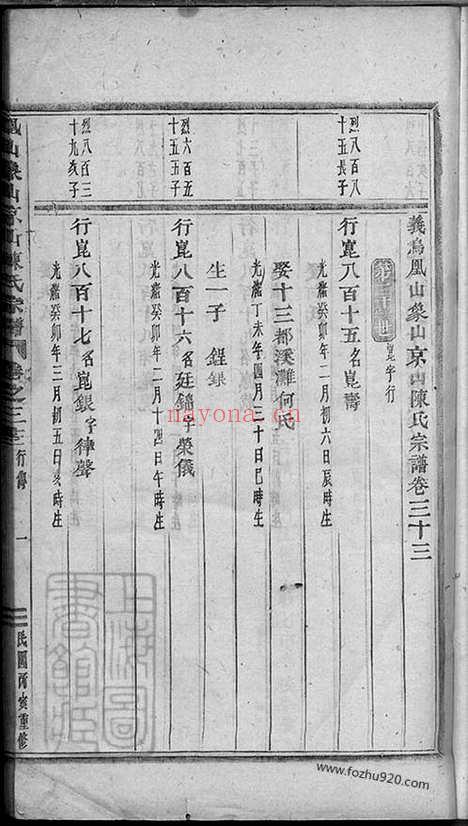 義烏鳳山象山京山陳氏宗譜卷三十三
崑字行
烈八百八
十五長子
行崑八百十五名崑壽
光緒癸卯二月初六日辰時生
娶十三都溪灘何氏
光緒丁未年四月三十日巳時生
生一子 鋥錄
烈六百五
十五五子
行崑八百十六名廷錦字榮儀
光緒癸卯年二月十四日午時生
烈八百三
十九亥子
行崑八百十七名崑銀字律聲
光緒癸卯年三月初五日亥時生
鳳山象山京山陳氏宗譜 卷之三十三 行傳
一
民國丙寅重修
上海圖書館藏
nayona.cn
www.fozhu920.com